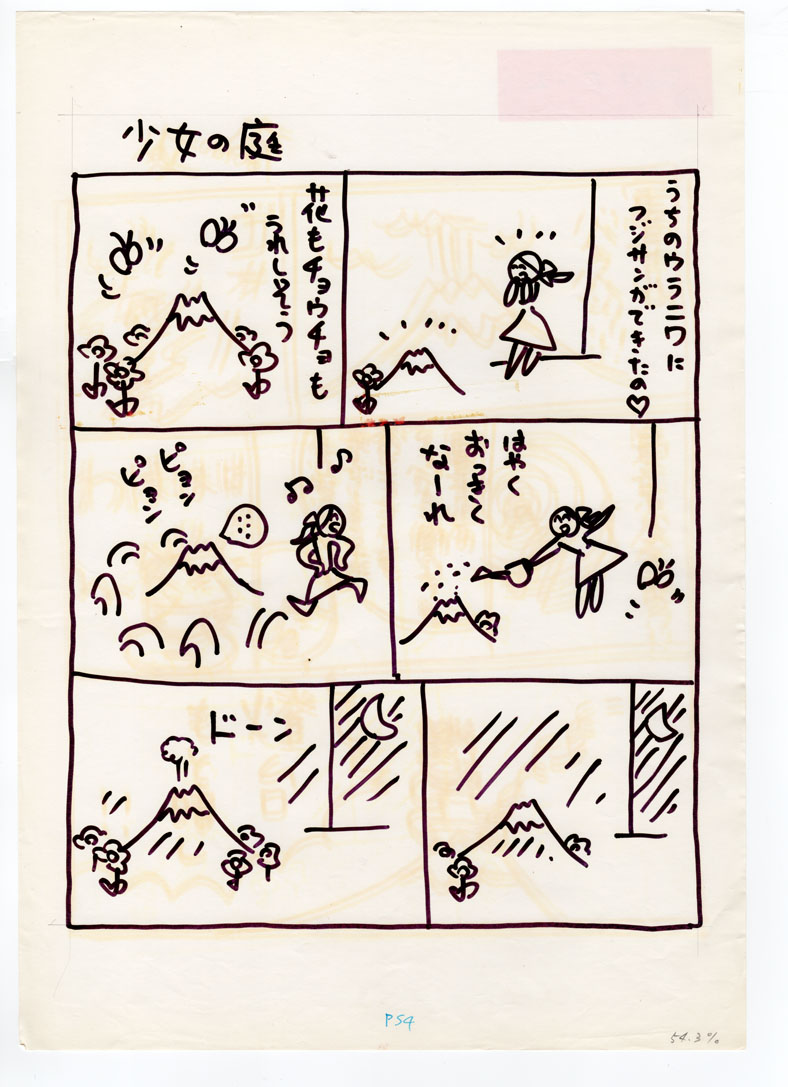 少女の庭
うちのウラニワに
フジサンができたの♡
花もチョウチョも
うれしそう
はやく
おっきく
なーれ
ピョン
ピョン
ドーン
P54
54.3%